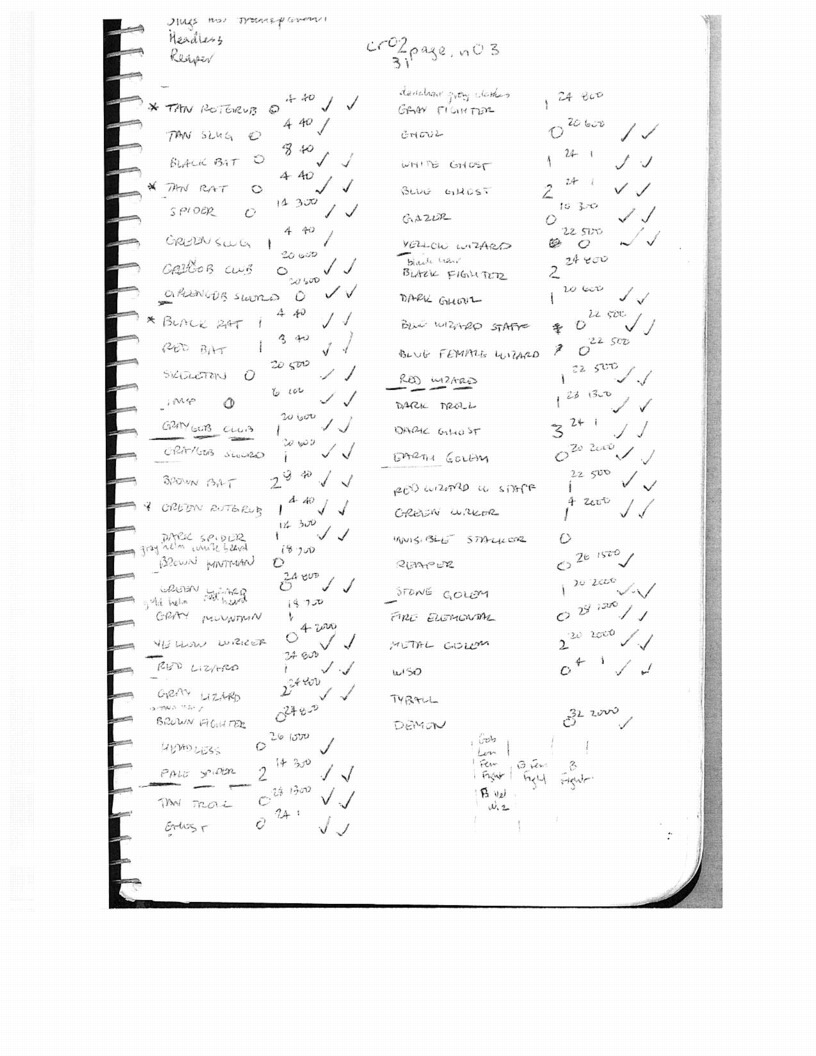 Slugs not transparent
Headless
Reaper
cr02page.n03
31
* TAN ROTGRUB 0 4 40 ✓ ✓
TAN SLUG 0 4 40 ✓
BLACK BAT 0 8 40 ✓ ✓
* TAN RAT 0 4 40 ✓ ✓
SPIDER 0 14 300 ✓ ✓
GREEN SLUG 1 4 40 ✓
GREENGOB CLUB 0 20 600 ✓ ✓
GREENGOB SWORD 0 20 600 ✓ ✓
* BLACK RAT 1 4 40 ✓ ✓
RED BAT 1 8 40 ✓ ✓
SKELETON 0 20 500 ✓ ✓
IMP 0 6 100 ✓ ✓
GRAYGOB CLUB 1 20 600 ✓ ✓
GRAYGOB SWORD 1 20 600 ✓ ✓
BROWN BAT 2 8 40 ✓ ✓
GREEN ROTGRUB 1 4 40 ✓ ✓
DARK SPIDER 1 14 300 ✓ ✓
gray helm white beard
BROWN MNTMAN 0 18 700
GREEN LIZARD 0 24 800 ✓ ✓
gold helm beard
GRAY MOUNTMAN 1 18 700
YELLOW LURKER 0 4 2000 ✓ ✓
RED LIZARD 1 24 800 ✓ ✓
GRAY LIZARD 2 24 800 ✓ ✓
BROWN FIGHTER 0 24 800
HEADLESS 0 26 1000 ✓
PALE SPIDER 2 14 300 ✓ ✓
TAN TROLL 0 28 1300 ✓ ✓
GHOST 0 24 1 ✓ ✓
gray clothes
GRAY FIGHTER 1 24 800
GHOUL 0 20 600 ✓ ✓
WHITE GHOST 1 24 1 ✓ ✓
BLUE GHOST 2 24 1 ✓ ✓
GAZER 0 16 300 ✓ ✓
YELLOW WIZARD 0 22 500 ✓ ✓
black hair
BLACK FIGHTER 2 24 800
DARK GHOUL 1 20 600 ✓ ✓
BLUE WIZARD STAFF 0 22 500 ✓ ✓
BLUE FEMALE WIZARD ? 0 22 500
RED WIZARD 1 22 500 ✓ ✓
DARK TROLL 1 28 1300 ✓ ✓
DARK GHOST 3 24 1 ✓ ✓
EARTH GOLEM 0 20 2000 ✓ ✓
RED WIZARD W STAFF 1 22 500 ✓ ✓
GREEN LURKER 1 4 2000 ✓ ✓
INVISIBLE STALKER 0
REAPER 0 26 1500 ✓
STONE GOLEM 1 20 2000 ✓ ✓
FIRE ELEMENTAL 0 28 1200 ✓ ✓
METAL GOLEM 2 20 2000 ✓ ✓
WISP 0 4 1 ✓ ✓
TYBALL
DEMON 0 32 2000 ✓
Gob
Fem B Fem B
Fight Fight Fight
Wiz